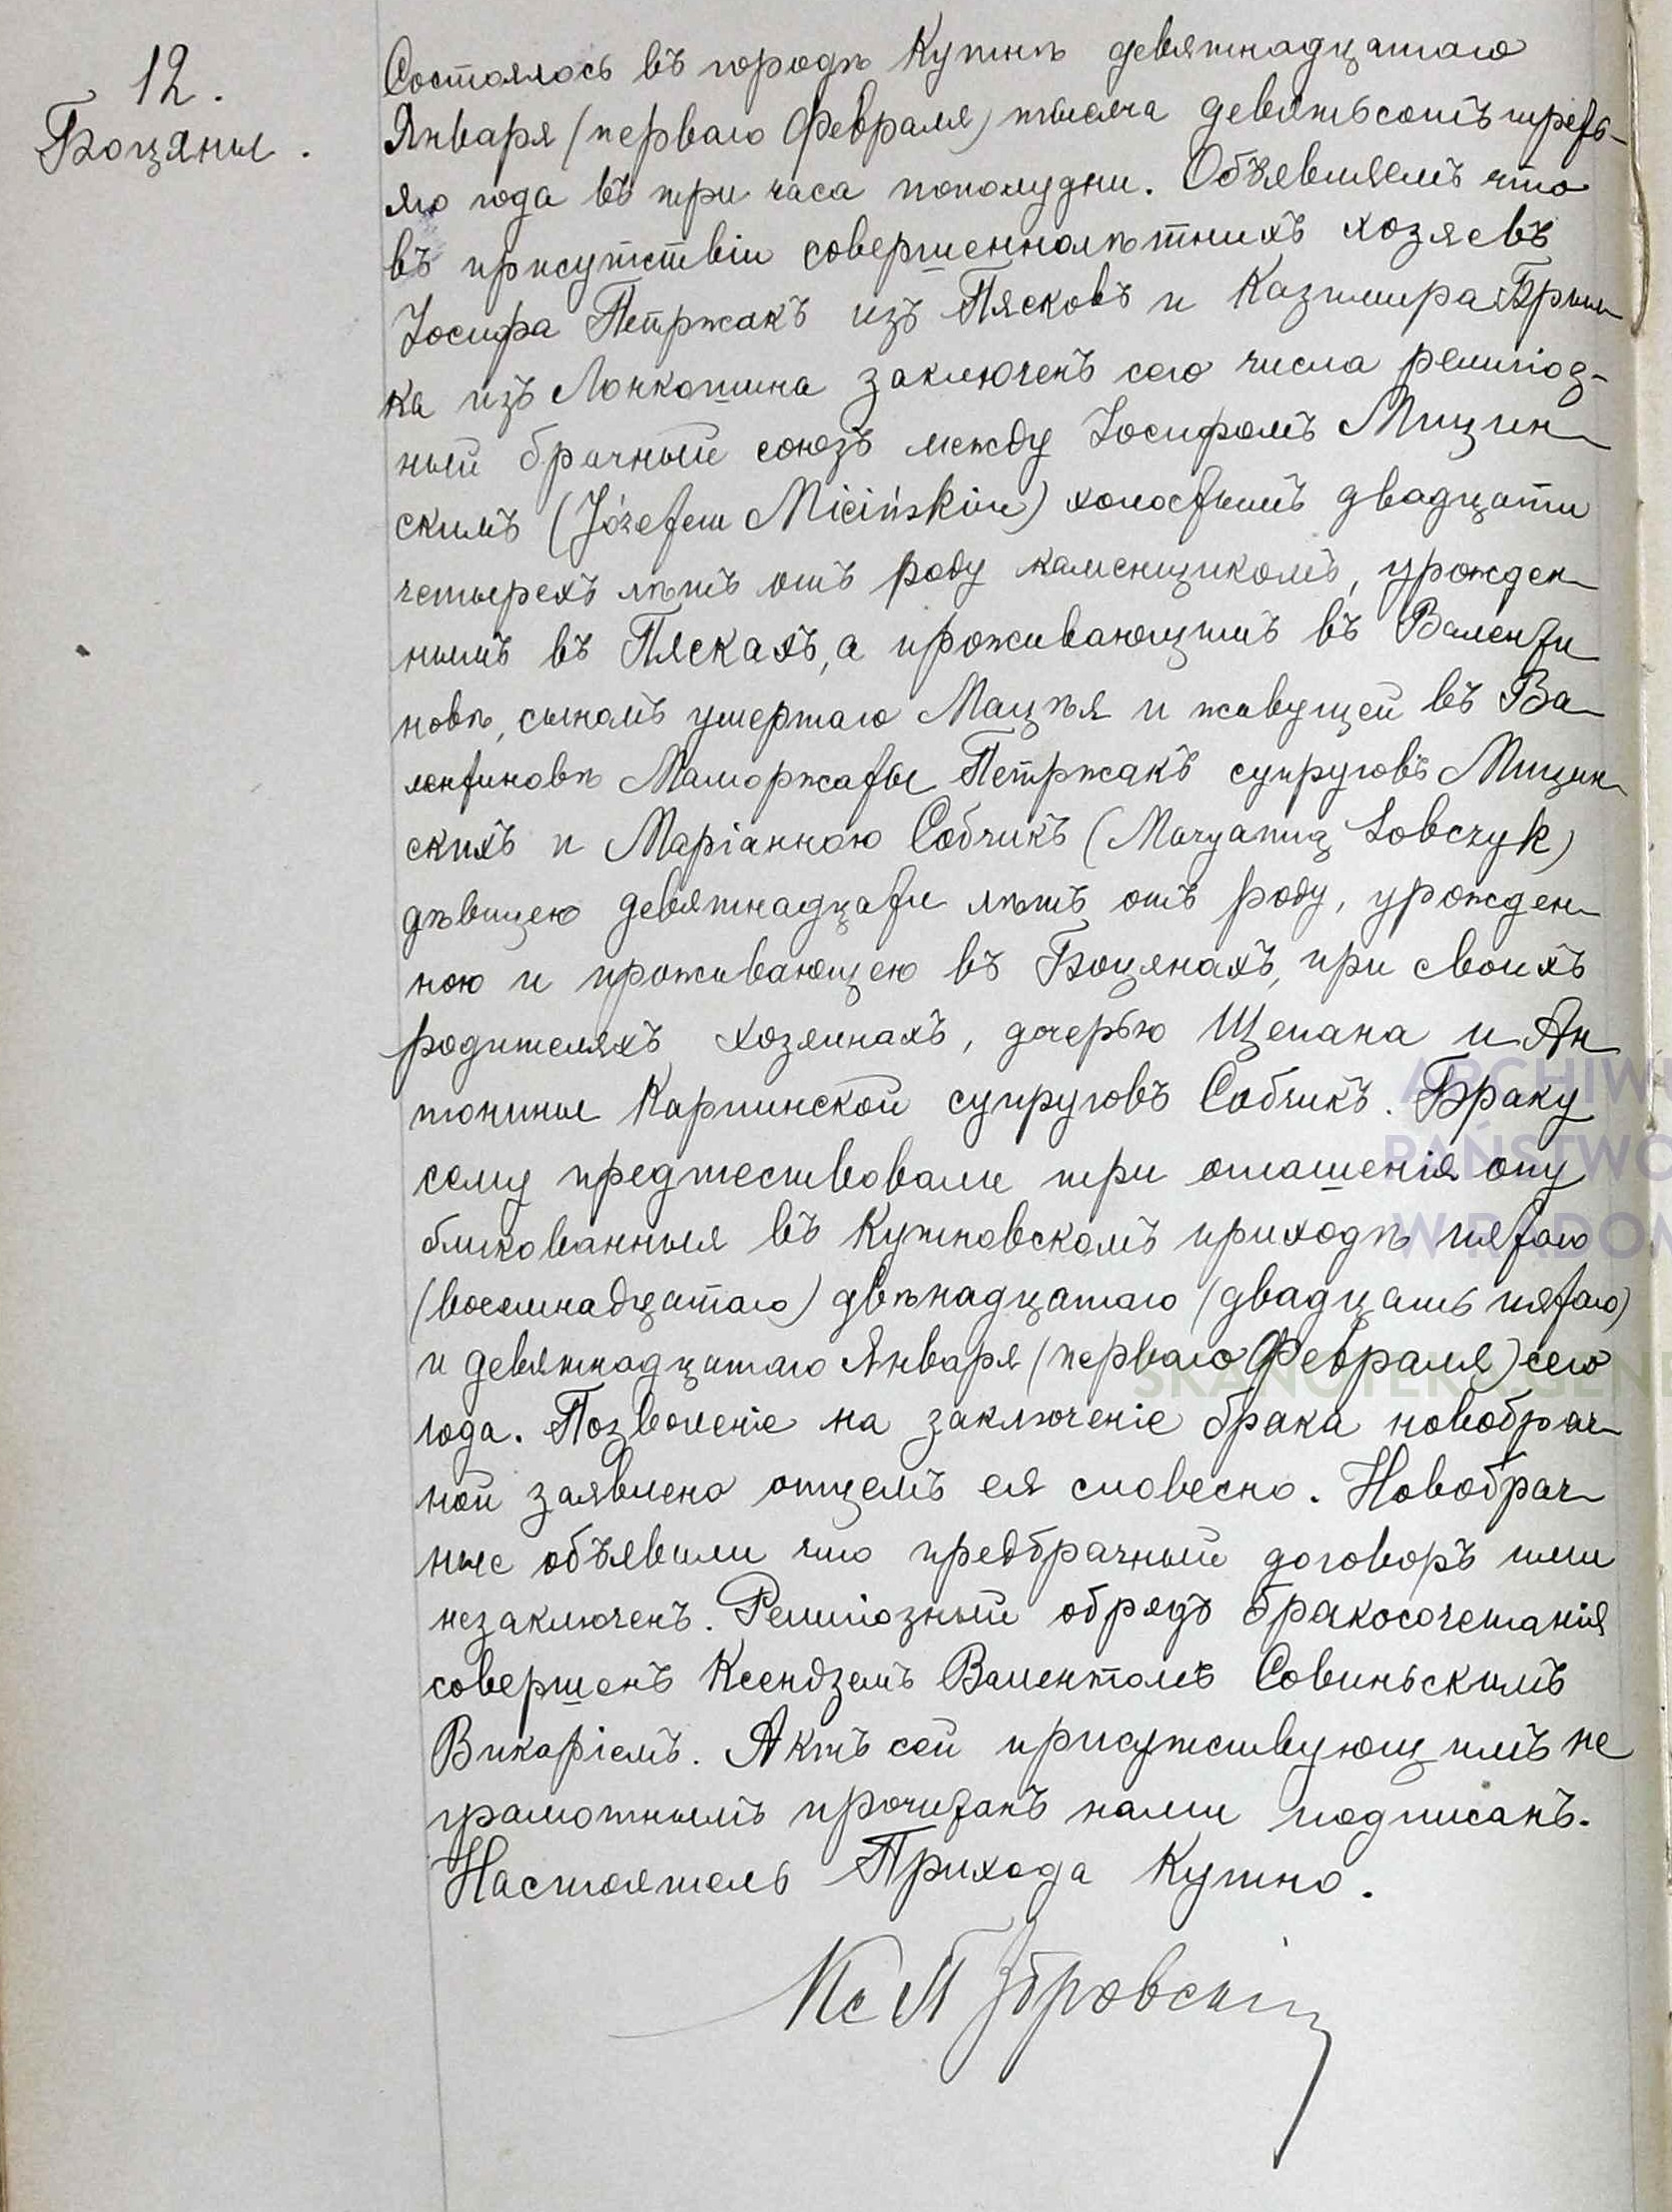 12.
Боцяны.
Состоялось въ городѣ Кутнѣ девятнадцатаго
Января (перваго Февраля) тысяча девятьсотъ треть-
яго года въ три часа пополудни. Объявляемъ что
въ присутствіи совершеннолѣтнихъ хозяевъ
Іосифа Петржакъ изъ Пясковъ и Казимира
ка изъ заключенъ сего числа религіоз-
ный брачный союзъ между Іосифомъ Мицин-
скимъ (Józefem Micińskim) холостымъ двадцати
четырехъ лѣтъ отъ роду каменщикомъ, урожден-
нымъ въ Пяскахъ, а проживающимъ въ Валенти
новѣ, сыномъ умершаго Мацѣя и живущей въ Ва-
лентиновѣ Малгоржаты Петржакъ супруговъ Мицин-
скихъ и Маріанною Собчикъ (Maryanną Sobczyk)
дѣвицею девятнадцати лѣтъ отъ роду, урожден-
ною и проживающею въ Боцянахъ, при своихъ
родителяхъ хозяинахъ, дочерью Щепана и Ан
тонины Карпинской супруговъ Собчикъ. Браку
сему предшествовали три оглашенія опу
бликованныя въ Кутновскомъ приходѣ пятаго
(восемнадцатаго) двѣнадцатаго (двадцать пятаго)
и девятнадцатаго Января (перваго Февраля) сего
года. Позволеніе на заключеніе брака новобрач-
ной заявлено отцемъ ея словесно. Новобрач-
ные объявили что предбрачный договоръ ими
незаключенъ. Религіозный обрядъ бракосочетанія
совершенъ Ксендземъ Валентомъ Совиньскимъ
Викаріемъ. Актъ сей присутствующимъ не
грамотнымъ прочитанъ нами подписанъ.
Настоятель Прихода Кутно.
Кс
ARCHIWU
PAŃSTWO
W RADOM
SKANOTEKA.GENE